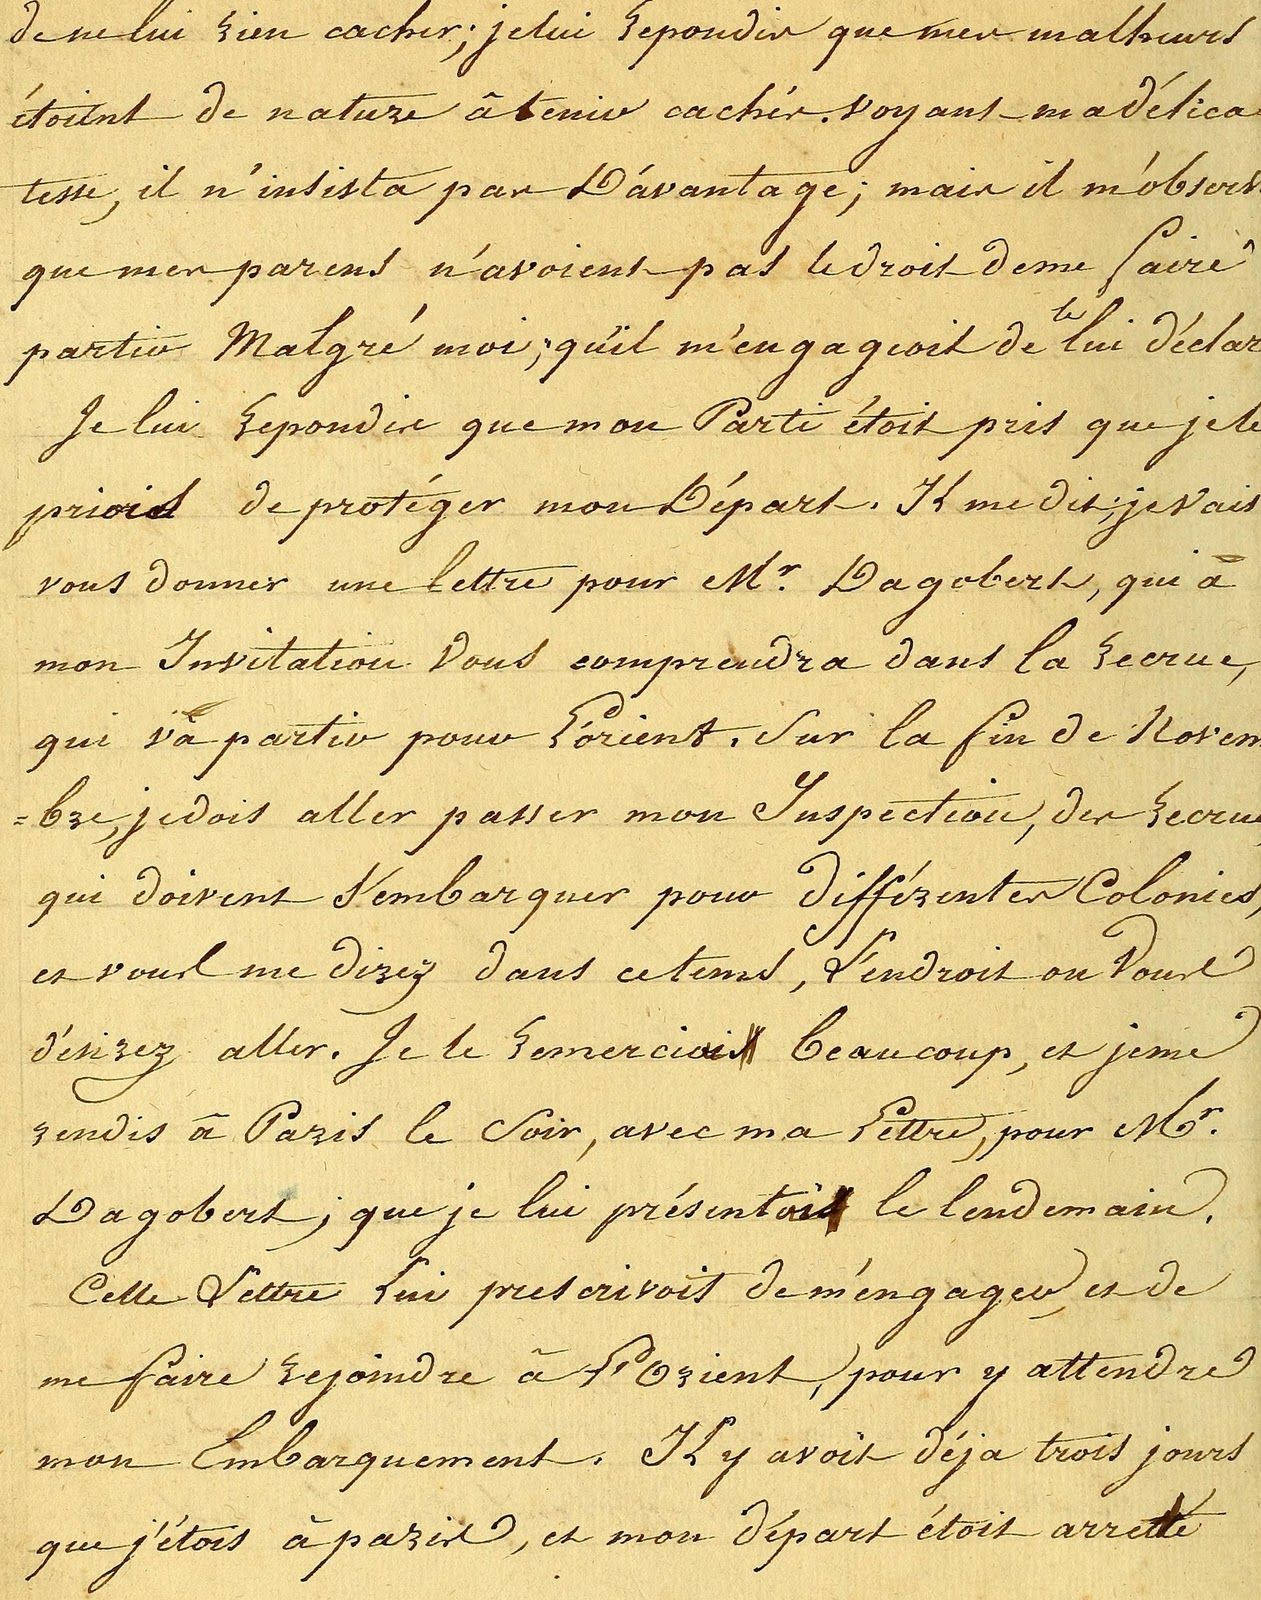 de ne lui rien cacher; je lui repondis que mes malheurs
étoient de nature â tenir cachés. voyant ma délica
tesse, il n'insista pas D'avantage; mais il m'observ
que mes parens n'avoient pas le droit de me faire
partir Malgré moi; qu'il m'engageoit de le lui déclar
Je lui repondis que mon Parti étoit pris que je le
priois de protéger mon Départ. Il me dit; je vais
vous donner une lettre pour Mr. Dagobert, qui à
mon Invitation Vous comprendra dans la recrue,
qui vâ partir pour L'orient. Sur la fin de Novem
=bre, je dois aller passer mon Inspection, des recrue
qui doivent s'embarquer pour différentes Colonies,
et vous me direz dans ce tems, L'endroit ou Vous
désirez aller. Je le remerciai beaucoup, et je me
rendis â Paris le Soir, avec ma Lettre, pour Mr.
Dagobert; que je lui présentai le lendemain.
Cette Lettre Lui prescrivoit de m'engager, et de
me faire rejoindre â L'Orient, pour y attendre
mon Embarquement. Il y avoit déja trois jours
que j'étois à paris, et mon départ étoit arretté